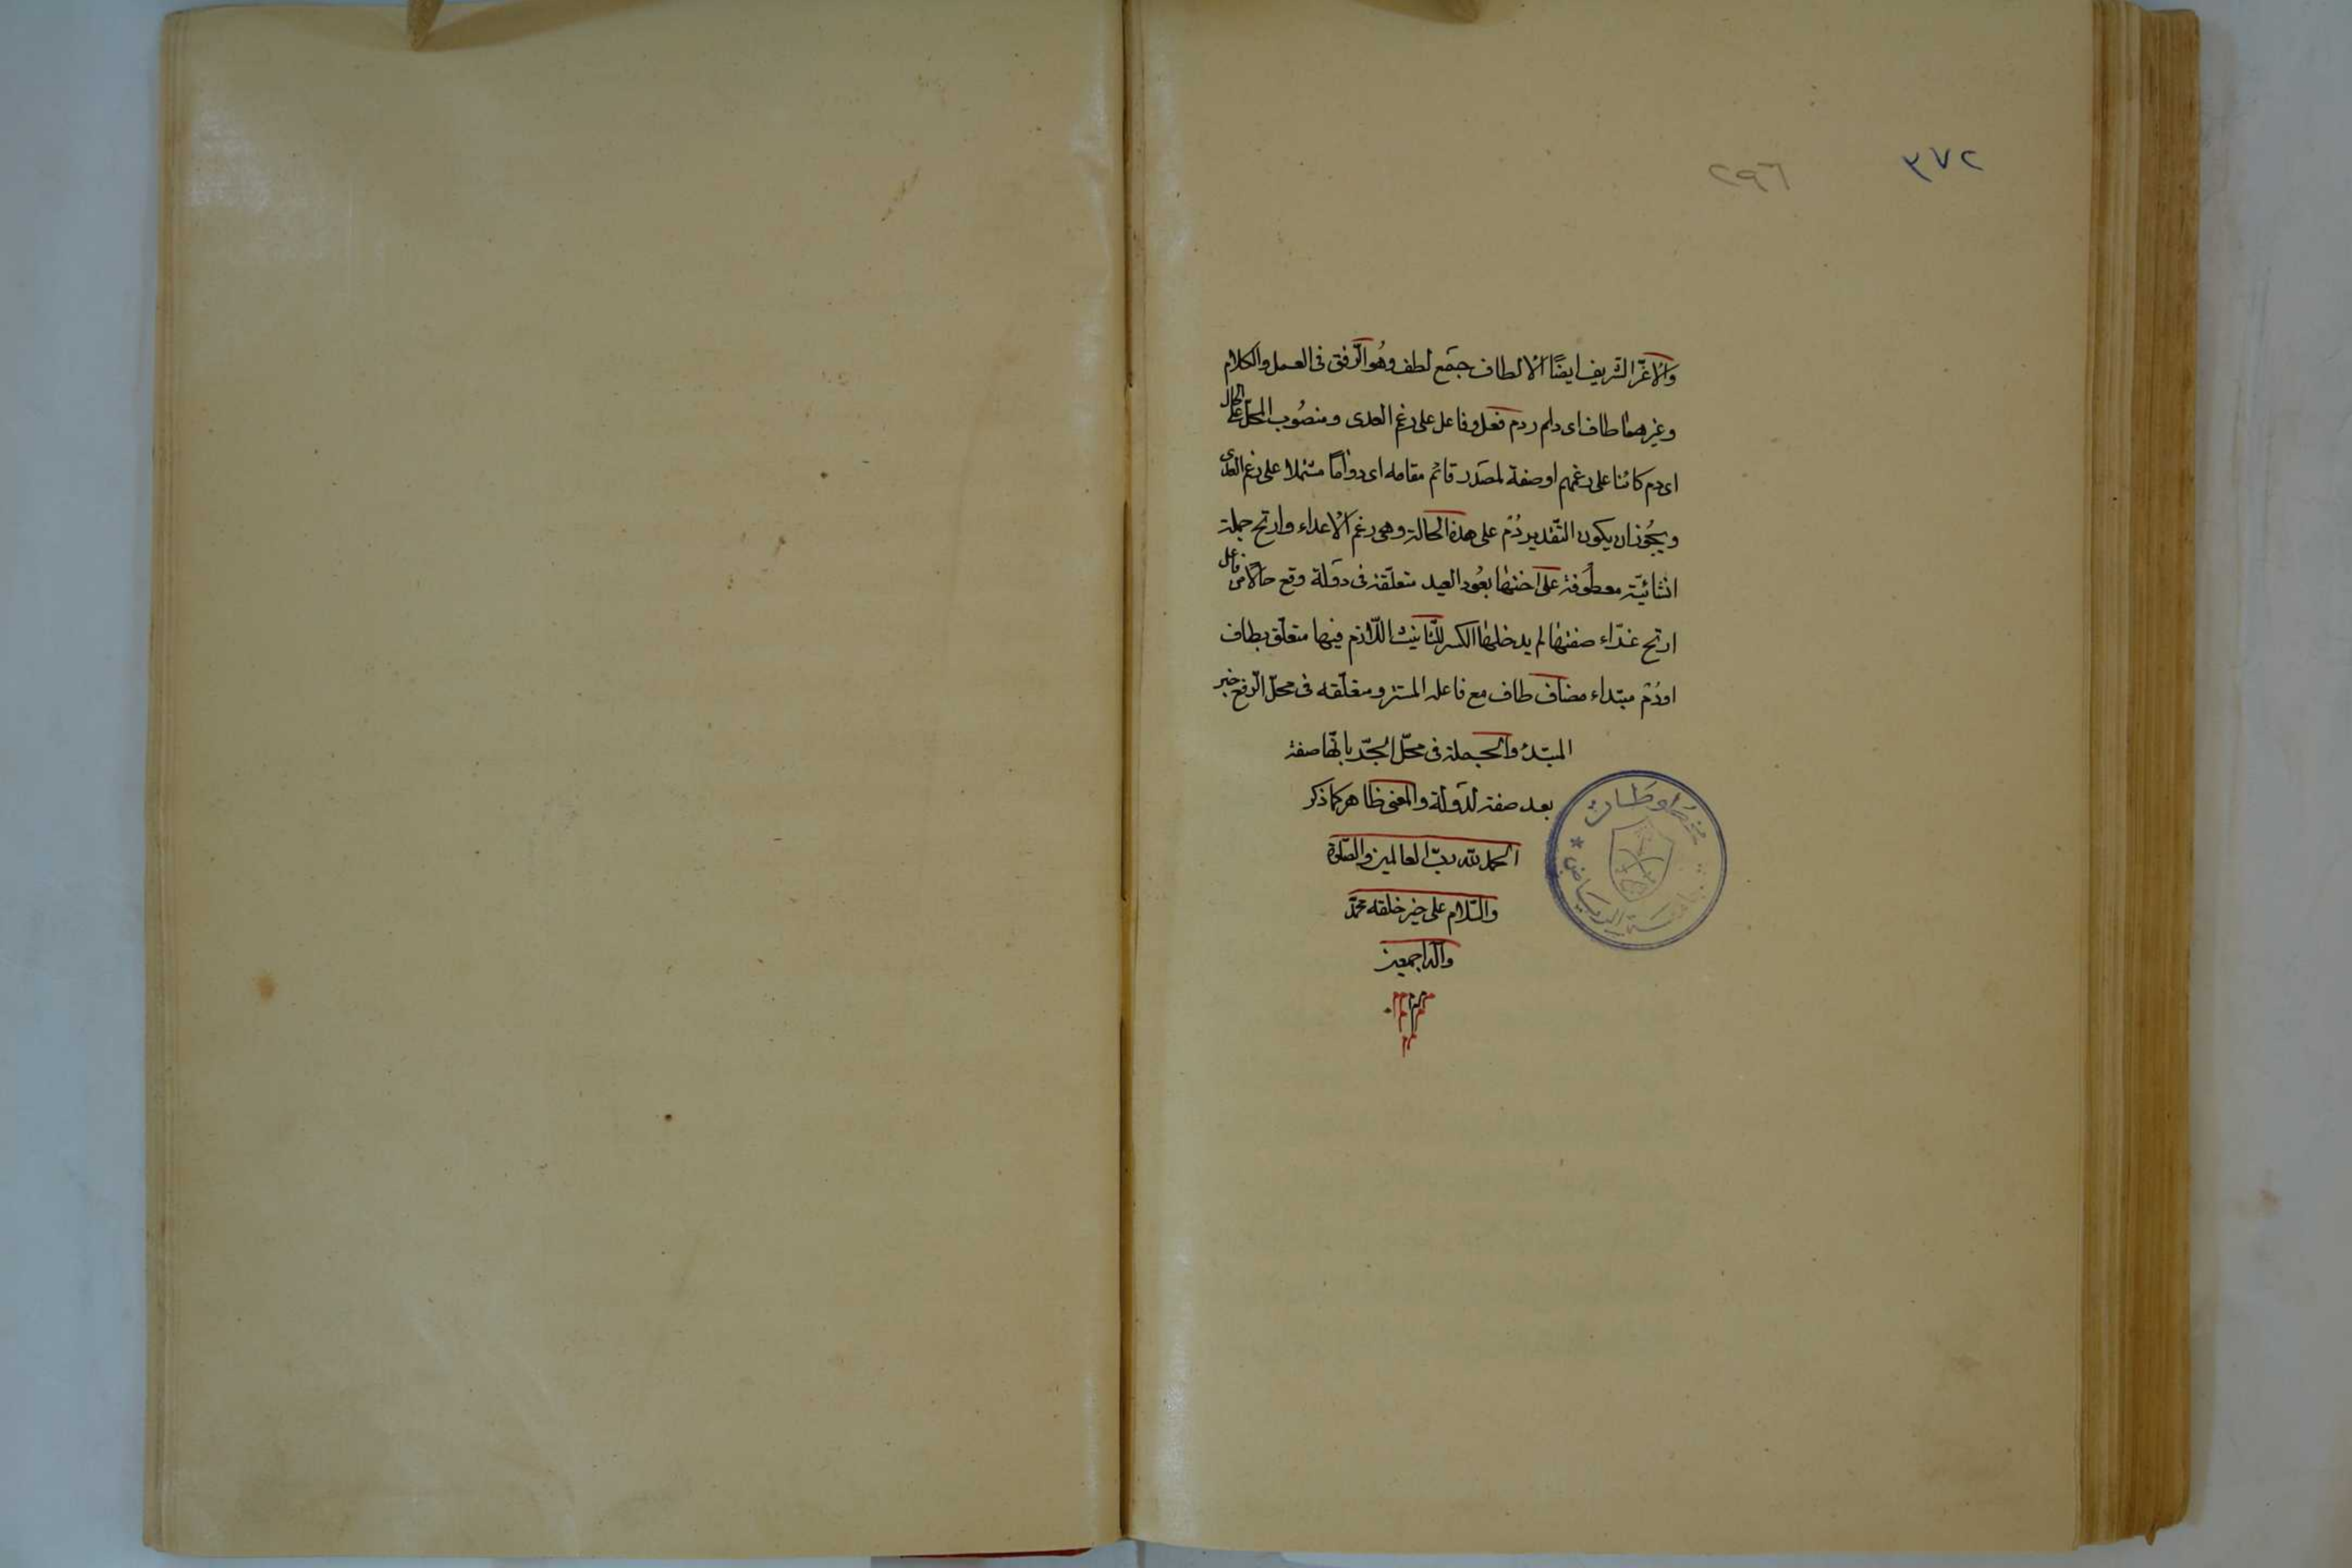 ٢٧٣
٢٩٦
والاغرّ الشريف ايضًا الالطاف جمع لطف وهو الرّفق فى العمل والكلام
وغيرهما طاف اى دام ردم فعل وفاعل على رغم العدى ومنصُوب المحلّ على الحال
اى دم كائنا على رغمهم او صفة لمصدر قائم مقامه اى دوامًا مشتملا على رغم العدى
ويجُوز ان يكون التّقدير دُم على هذه الحالة وهى رغم الاعداء وارتح جملة
انشائيّة معطوفة على اختها بعُود العيد متعلّقة فى دولة وقع حالًا من فاعل
ارتح غرّاء صفتها لم يدخلها الكسر للتّانيث اللّازم فيها متعلّق بطاف
اودُم مبتداء مضاف طاف مع فاعله المستتر ومتعلّقه فى محلّ الرّفع خبر
المبتدء والجملة فى محلّ الجّر بانّها صفة
بعد صفة لدولة والمعنى ظاهر كما ذكر
الحمد لله ربّ العالمين والصّلوة
والسّلام على خير خلقه محمّد
وآله اجمعين
الرياض